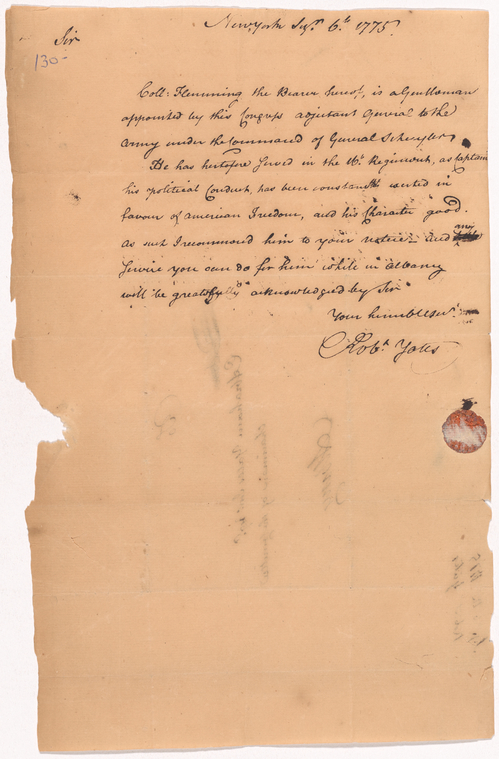 New York Sepr. 6th 1775.
Sir
130-
Coll: Flemming the Bearer hereof, is a Gentleman
appointed by this Congress adjutant General to the
Army under the Command of General Schuyler,
He has hertofore Served in the 16th Regiment, as Captain
his political Conduct, has been constantly exerted in
favour of american Freedom, and his Charater good.
As such I recommend him to your notice – And any
Service you can do for him while in Albany
will be greatefully acknowledged by Sir
Your humble Servt.
Robt. Yates